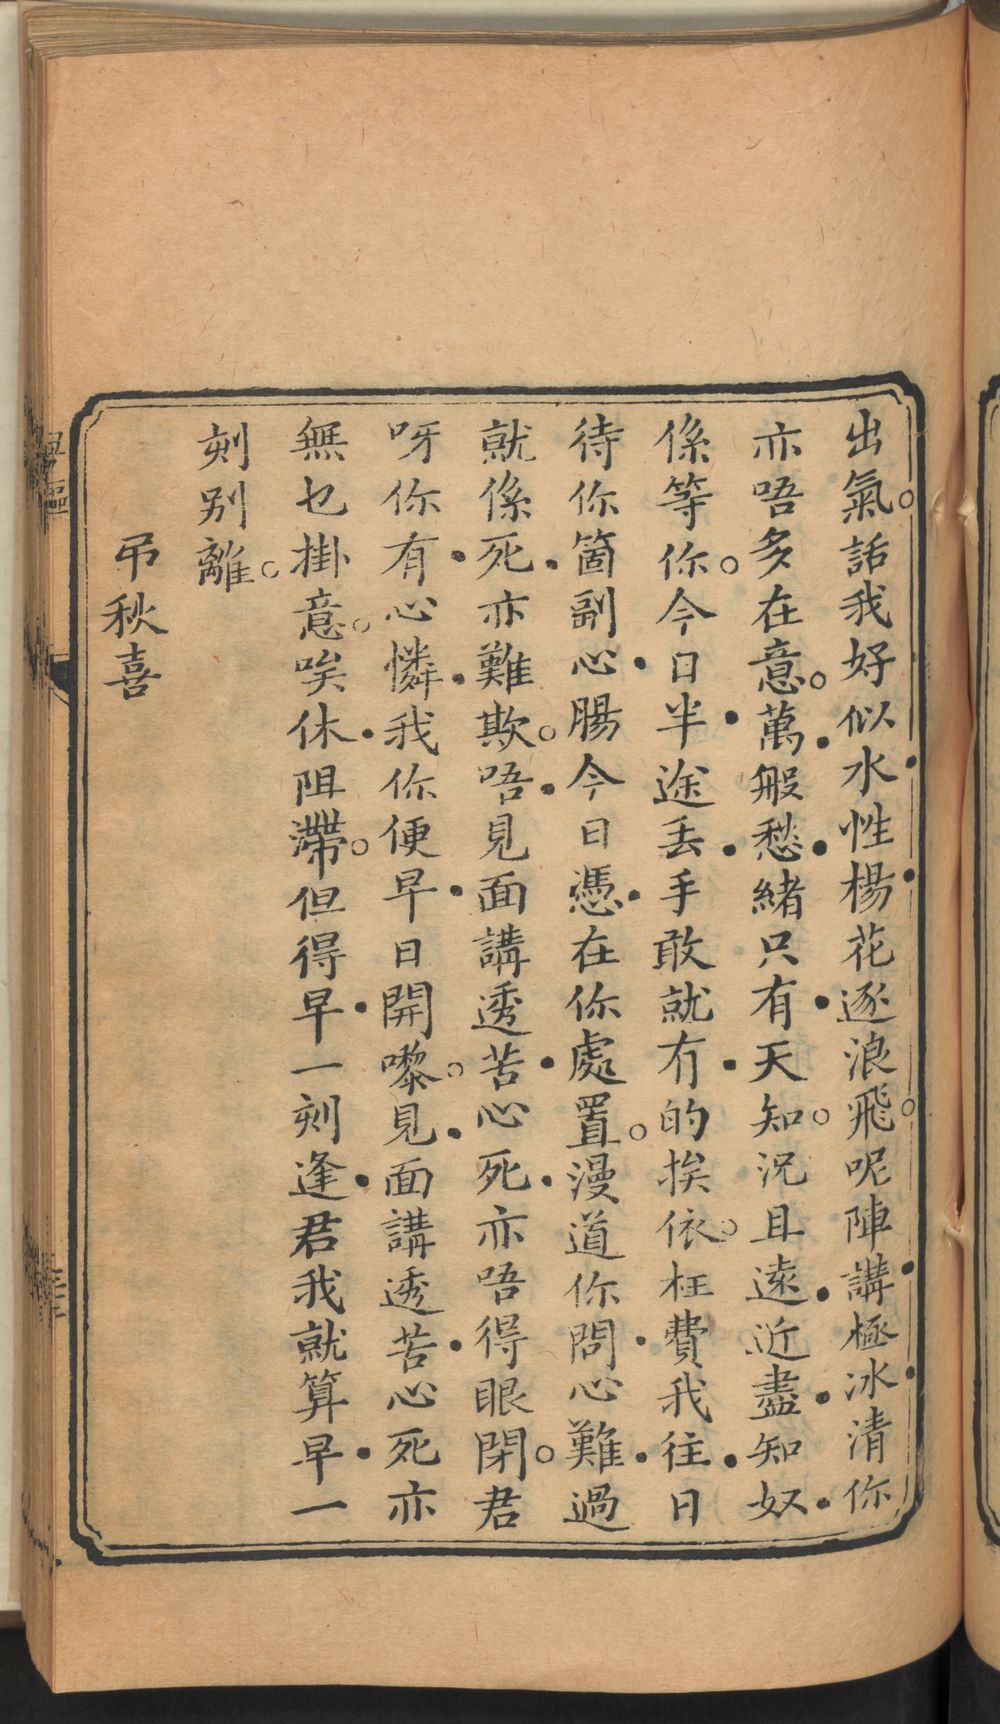 出氣。話我好似水性楊花逐浪飛。呢陣講極冰清你
亦唔多在意。萬般愁緒只有天知。况且遠近盡知奴
係等你。今日半途丢手敢就冇的挨依。枉費我往日
待你箇副心腸今日憑在你處置。漫道你問心難過
就係死亦難欺。唔見面講透苦心死亦唔得眼閉。君
呀你有心憐我你便早日開嚟。見面講透苦心死亦
無乜掛意。唉休阻滯。但得早一刻逢君我就算早一
刻别離。
弔秋喜